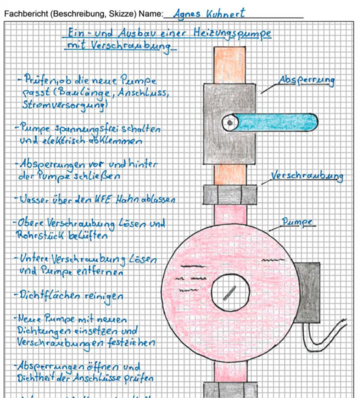 Fachbericht (Beschreibung, Skizze) Name: Agnes Kuhnert
Ein- und Ausbau einer Heizungspumpe
mit Verschraubung
- Prüfen, ob die neue Pumpe
passt (Baulänge, Anschluss,
Stromversorgung)
- Pumpe spannungsfrei schalten
und elektrisch abklemmen
- Absperrungen vor und hinter
der Pumpe schließen
- Wasser über den KFE Hahn ablassen
- Obere Verschraubung lösen und
Rohrstück belüften
- Untere Verschraubung lösen
und Pumpe entfernen
- Dichtflächen reinigen
- Neue Pumpe mit neuen
Dichtungen einsetzen und
Verschraubungen festziehen
- Absperrungen öffnen und
Dichtheit der Anschlüsse prüfen
Absperrung
Verschraubung
Pumpe